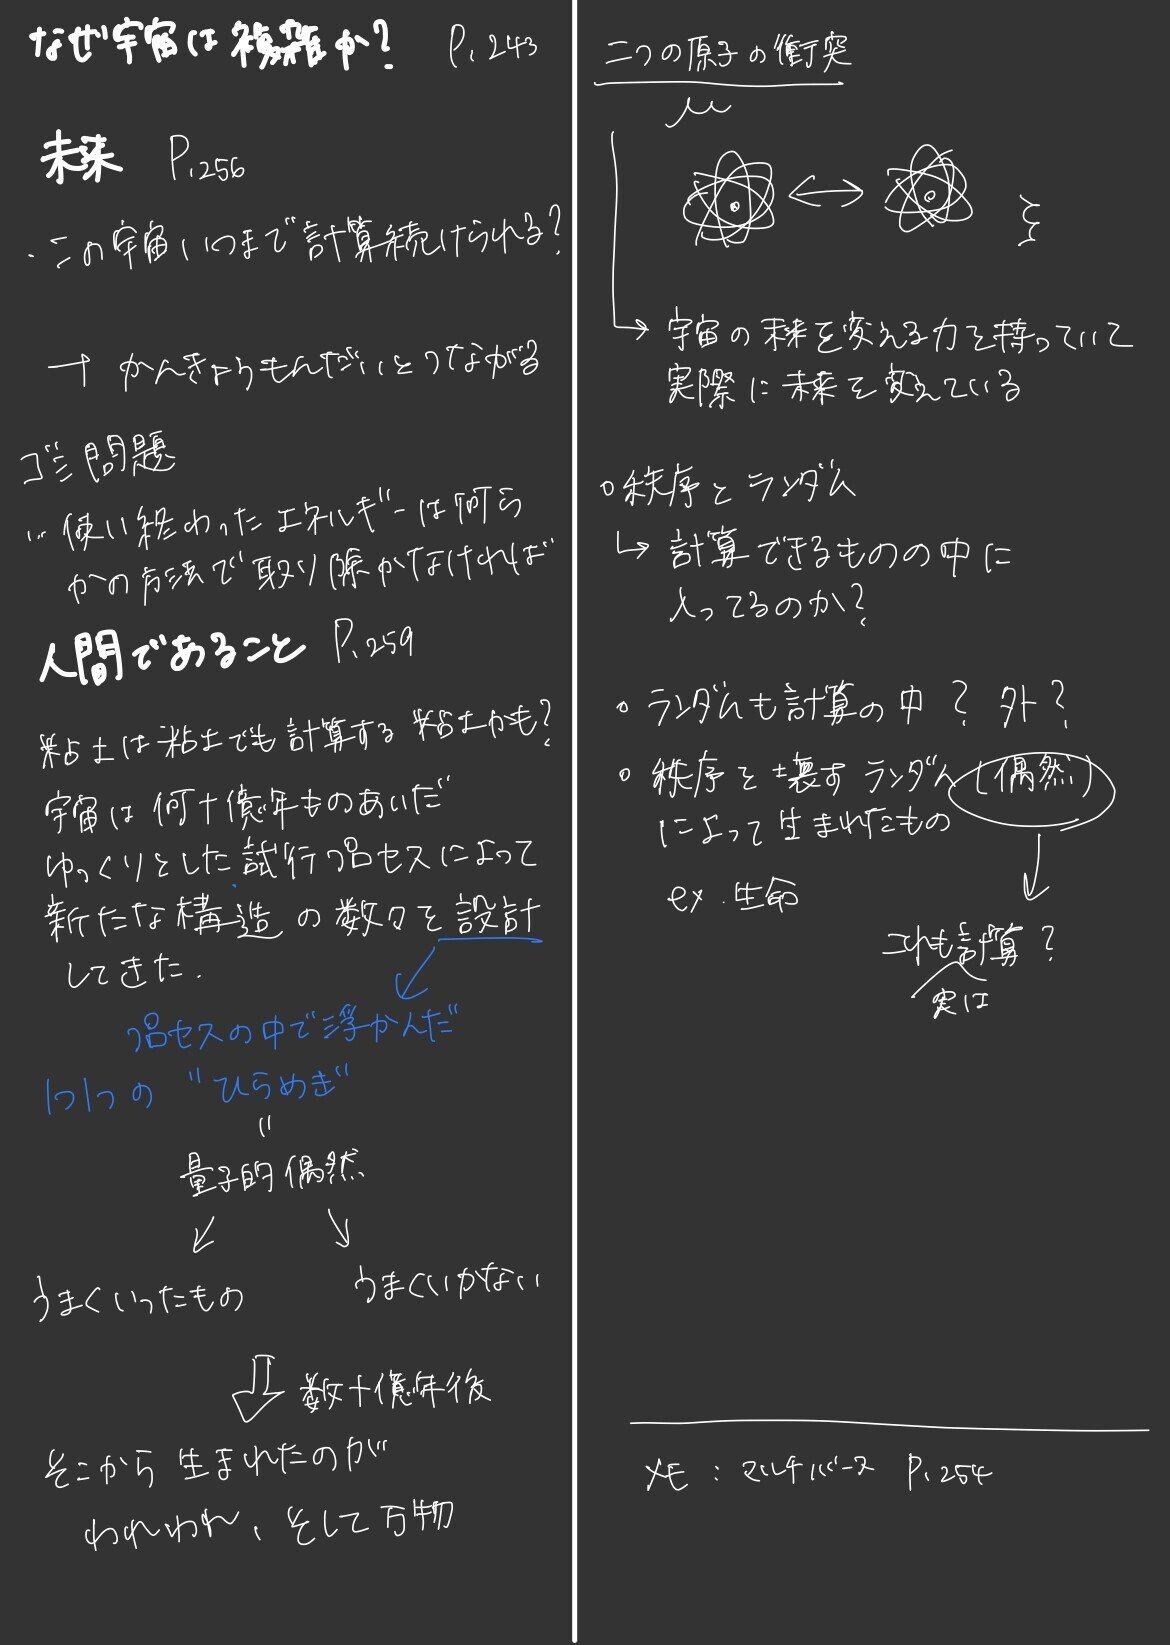 なぜ宇宙は複雑か? P.243
未来 P.256
・この宇宙いつまで計算続けられる?
→ かんきょうもんだいとつながる
ゴミ問題
使い終わったエネルギーは何ら
かの方法で取り除かなければ
人間であること P.259
粘土は粘土でも計算する粘土かも?
宇宙は何十億年ものあいだ
ゆっくりとした試行プロセスによって
新たな構造の数々を設計
してきた.
プロセスの中で浮かんだ
1つ1つの "ひらめき"
〃
量子的偶然
うまくいったもの
うまくいかない
数十億年後
そこから生まれたのが
われわれ、そして万物
二つの原子の衝突
→ 宇宙の未来を変える力を持っていて
実際に未来を変えている
○秩序とランダム
→ 計算できるものの中に
入ってるのか?
○ランダムも計算の中? 外?
○秩序を壊すランダム(偶然)
によって生まれたもの
ex.生命
これも計算?
実は
メモ:マルチバース P.254